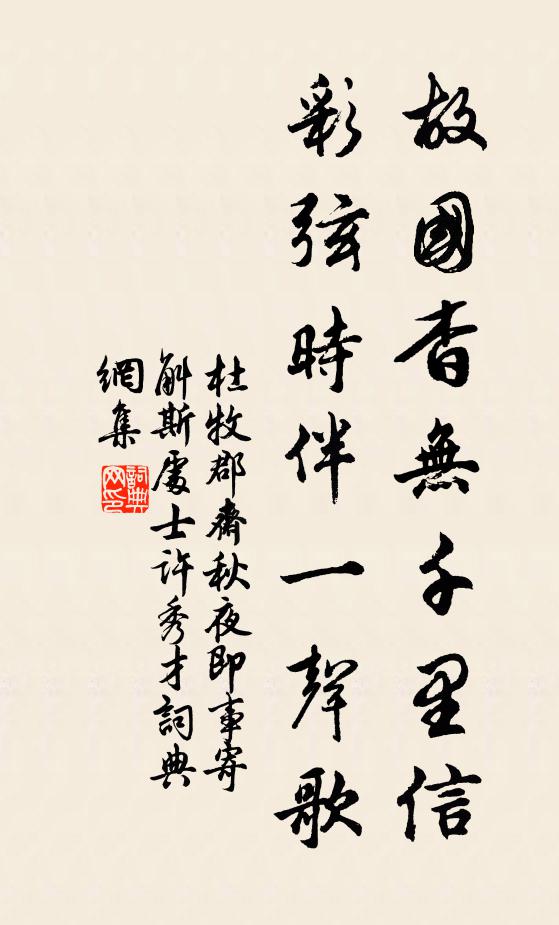 故國杳無千里信
彩弦時伴一聲歌
杜牧郡齋秋夜即事寄
斛斯處士許秀才詞典
網集
詞典
网印